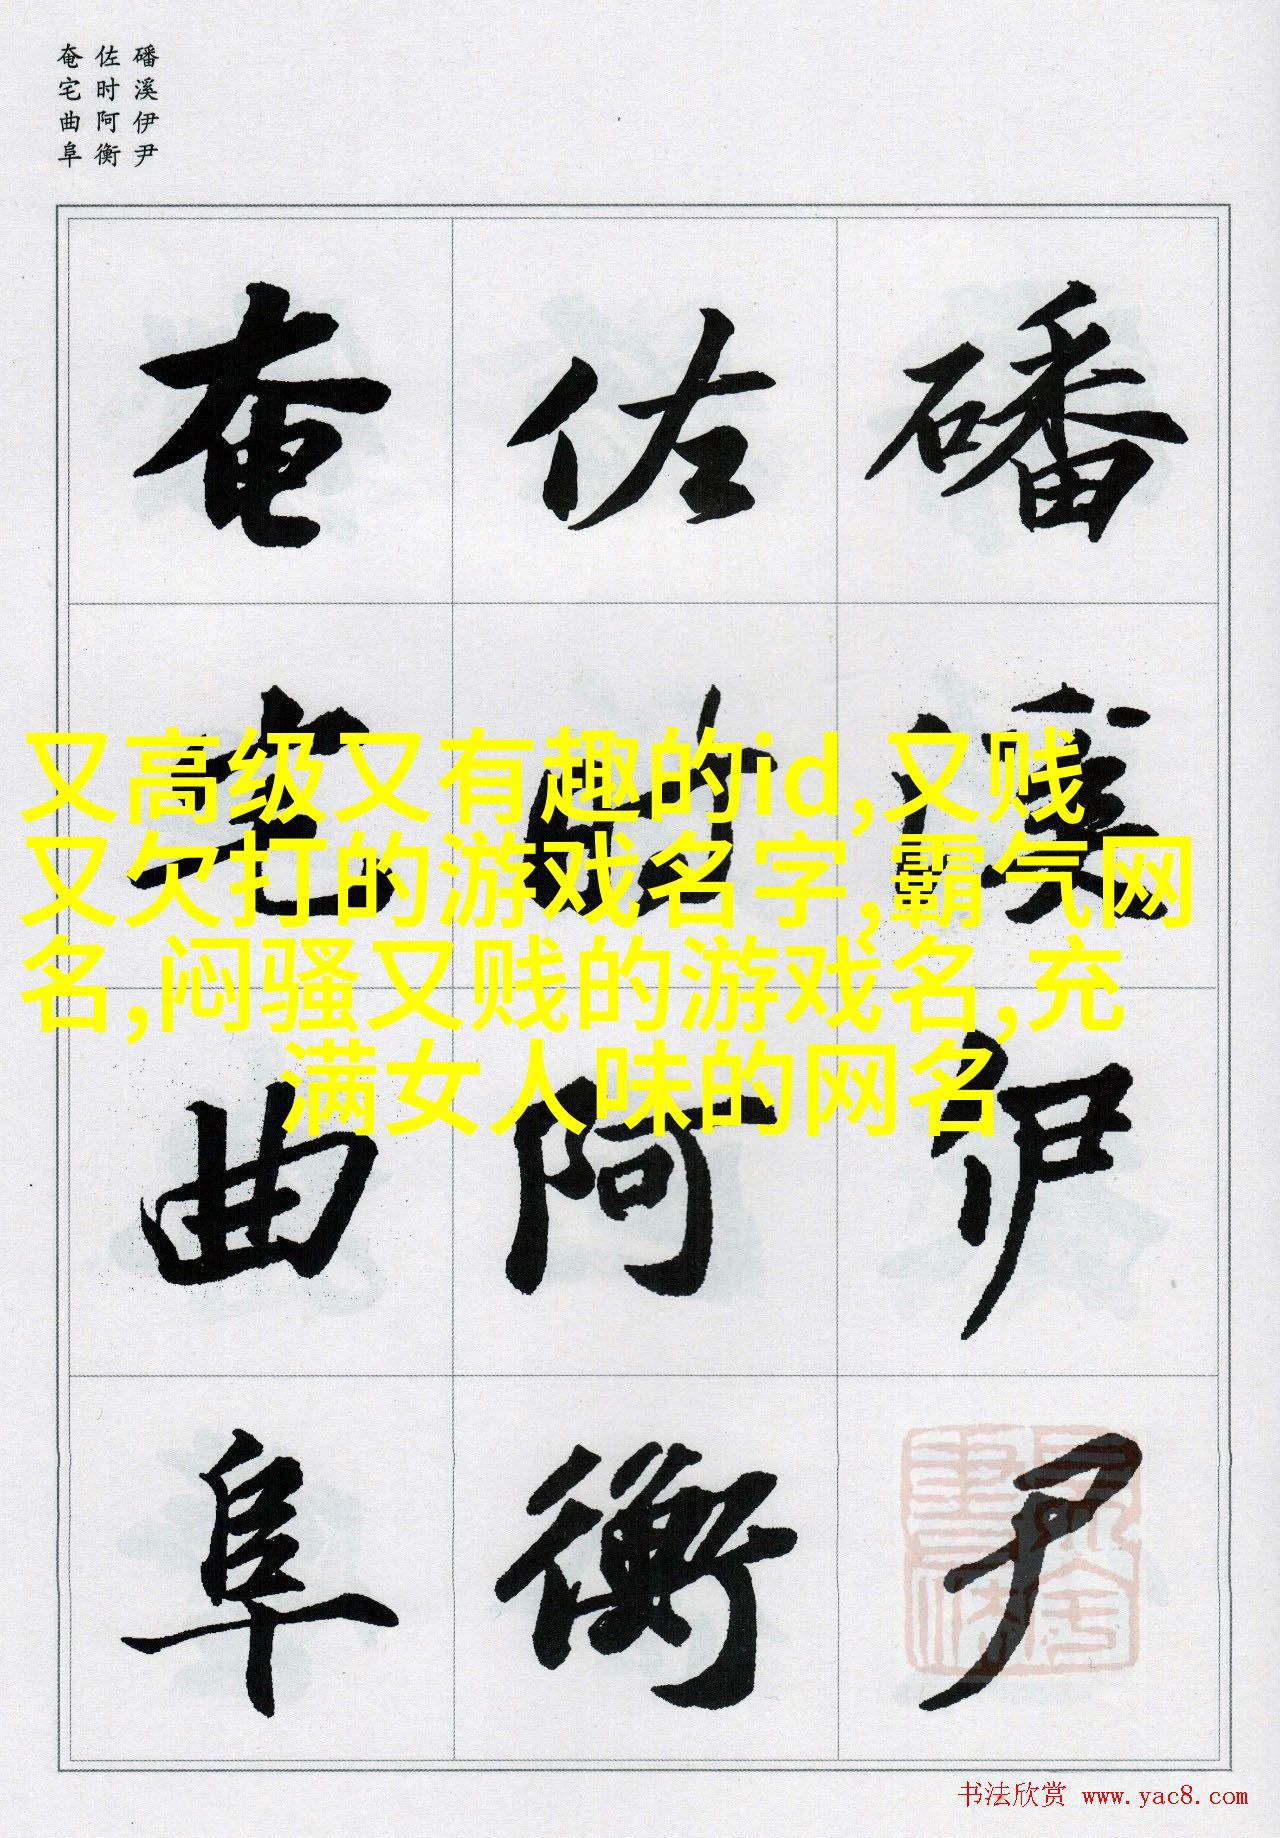 磻溪伊尹
佐时阿衡
奄宅曲阜
磻溪伊尹
佐时阿衡
奄宅曲阜
又高级又有趣的id,又贱
又欠打的游戏名字,霸气网
名,闷骚又贱的游戏名,充
满女人味的网名
书法欣赏 www.yac8.com